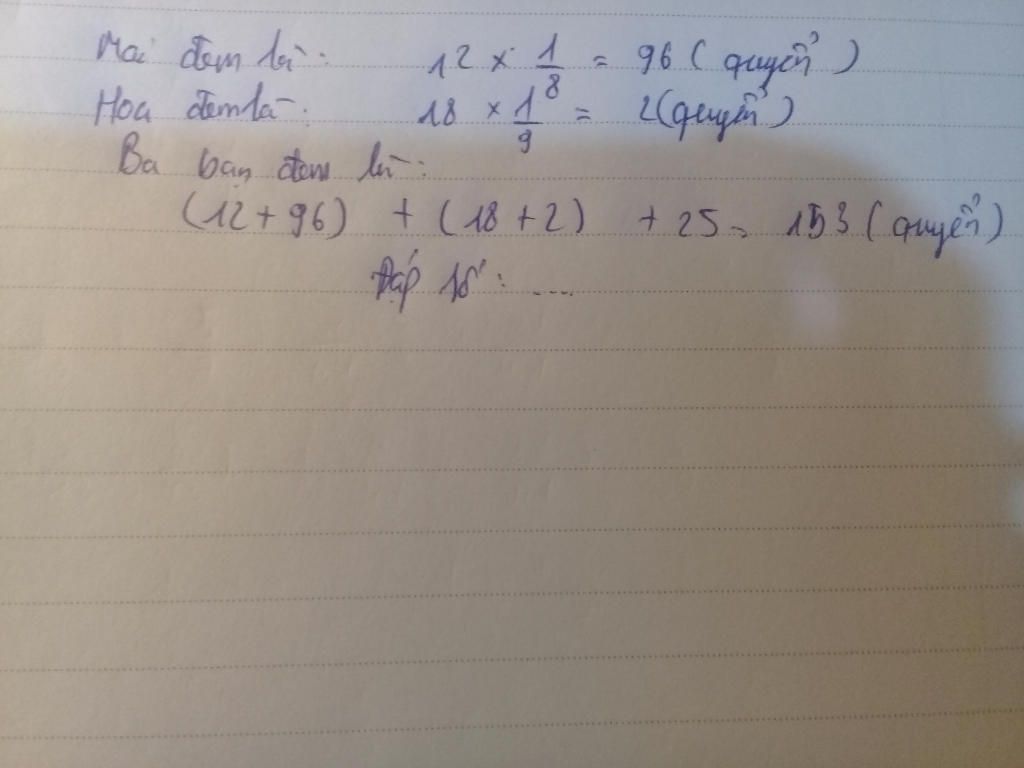 Mai đem là: 12 × 1/8 = 96 (quyển)
Hoa đem là: 18 × 1/9 = 2 (quyển)
Ba bạn đem là:
(12 + 96) + (18 + 2) + 25 = 153 (quyển)
Đáp số: ....